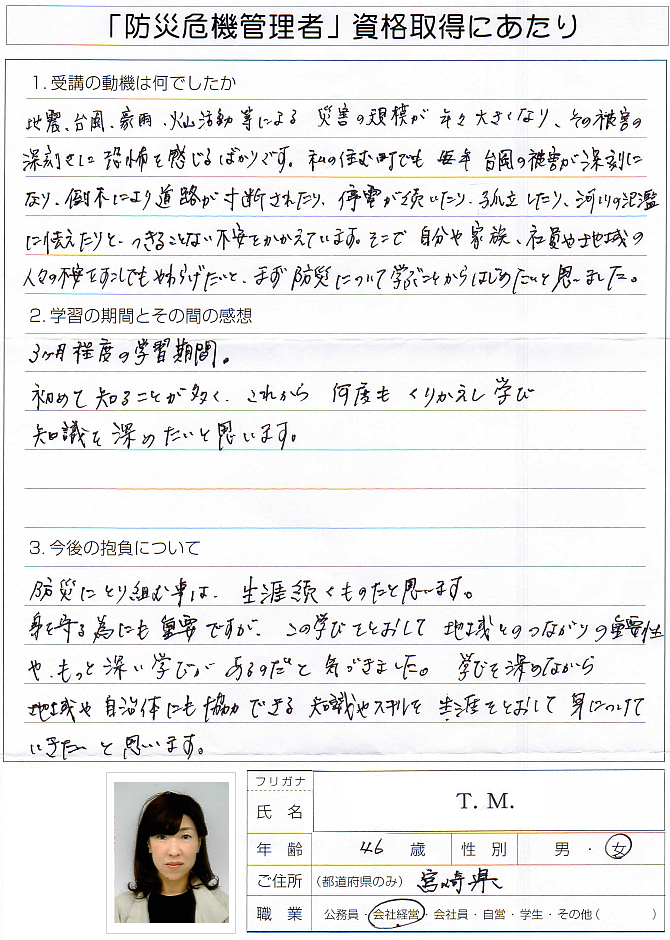 「防災危機管理者」資格取得にあたり
1. 受講の動機は何でしたか
地震、台風、豪雨、火山活動等による 災害の規模が 年々大きくなり、その被害の
深刻さに 恐怖を感じるばかりです。私の住む町でも 毎年 台風の被害が深刻に
なり、倒木により道路が寸断されたり、停電が続いたり、孤立したり、河川の氾濫
に怯えたりと、つきることない不安をかかえています。そこで 自分や家族、社員や地域の
人々の不安をすこしでもやわらげたいと、まず防災について学ぶことからはじめたいと思いました。
2. 学習の期間とその間の感想
3ヶ月程度の学習期間。
初めて知ることが多く、これから 何度も くりかえし学び
知識を深めたいと思います。
3. 今後の抱負について
防災にとり組む事は、生涯続くものだと思います。
身を守る為にも重要ですが、この学びをとおして 地域とのつながりの重要性
や、もっと深い学びが あるのだと 気づきました。 学びを深めながら
地域や自治体にも協力できる 知識やスキルを 生涯をとおして 身につけて
いきたいと思います。
フリガナ
氏 名 T. M.
年 齢 46 歳 性 別 男 ・ 女
ご住所 (都道府県のみ) 宮崎県
職 業 公務員・会社経営・会社員・自営・学生・その他( )